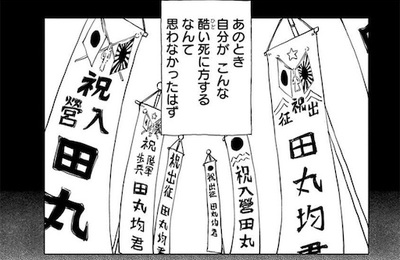 あのとき
自分が こんな
酷い死に方する
なんて
思わなかったはず
祝出征
田丸均君
祝入營 田丸
祝出征 田丸均君
祝出征 田丸均君
祝
歩兵
田丸均君
祝入營
田丸